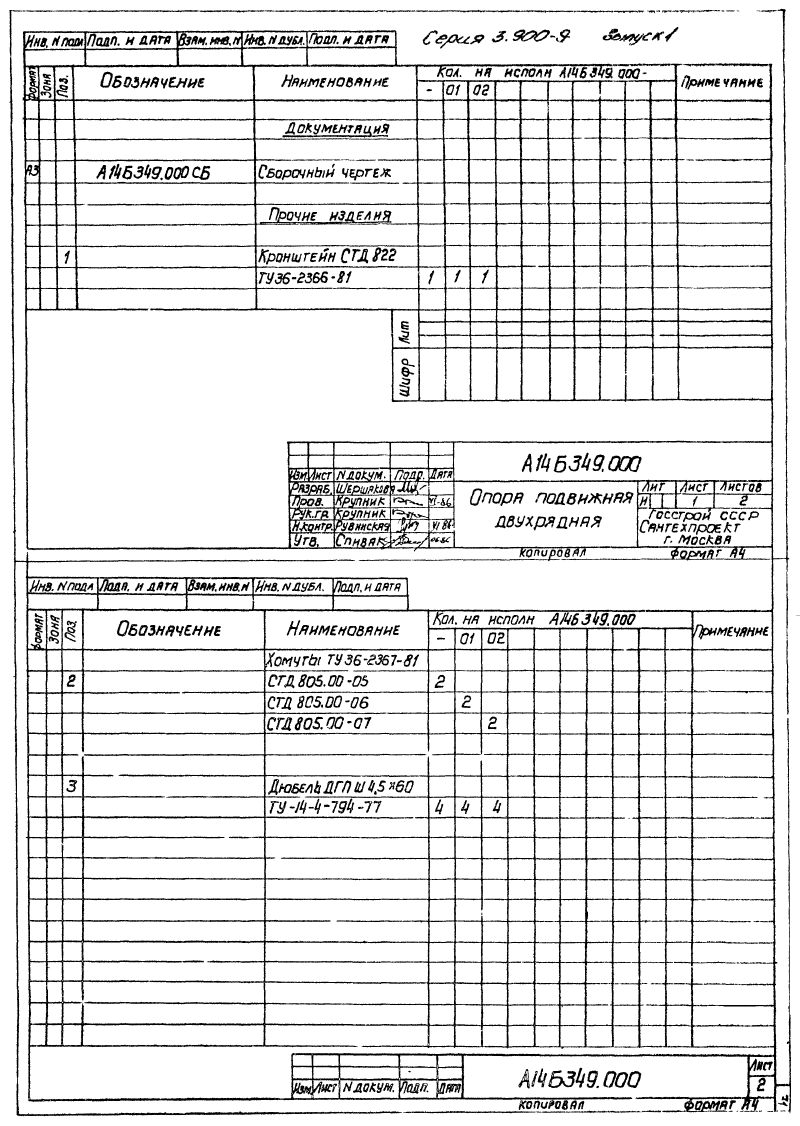 Серия 3.900-9 Выпуск 1
Инв. N подл Подп. и дата Взам. инв. N Инв. N дубл. Подп. и дата
Формат Зона Поз. Обозначение Наименование Кол. на исполн А14Б349.000- Примечание
- 01 02
Документация
А3 А14Б349.000 СБ Сборочный чертеж
Прочие изделия
1 Кронштейн СТД 822
ТУ36-2366-81 1 1 1
Лит
Шифр
А14Б349.000
Изм Лист N докум. Подр. Дата
Разраб. Шершакова
Пров. Крупник VI-86
Рук.гр. Крупник
Н.контр. Рувинская VI 86
Утв. Спивак 06.86
Опора подвижная
двухрядная
Лит Лист Листов
И 1 2
Госстрой СССР
Сантехпроект
г. Москва
копировал формат А4
Инв. N подл Подп. и дата Взам. инв. N Инв. N дубл. Подп. и дата
Формат Зона Поз. Обозначение Наименование Кол. на исполн А14Б349.000 Примечание
- 01 02
Хомуты ТУ36-2367-81
2 СТД 805.00-05 2
СТД 805.00-06 2
СТД 805.00-07 2
3 Дюбель ДГП Ш 4,5×60
ТУ-14-4-794-77 4 4 4
Изм Лист N докум. Подп. Дата
А14Б349.000
Лист
2
копировал формат А4